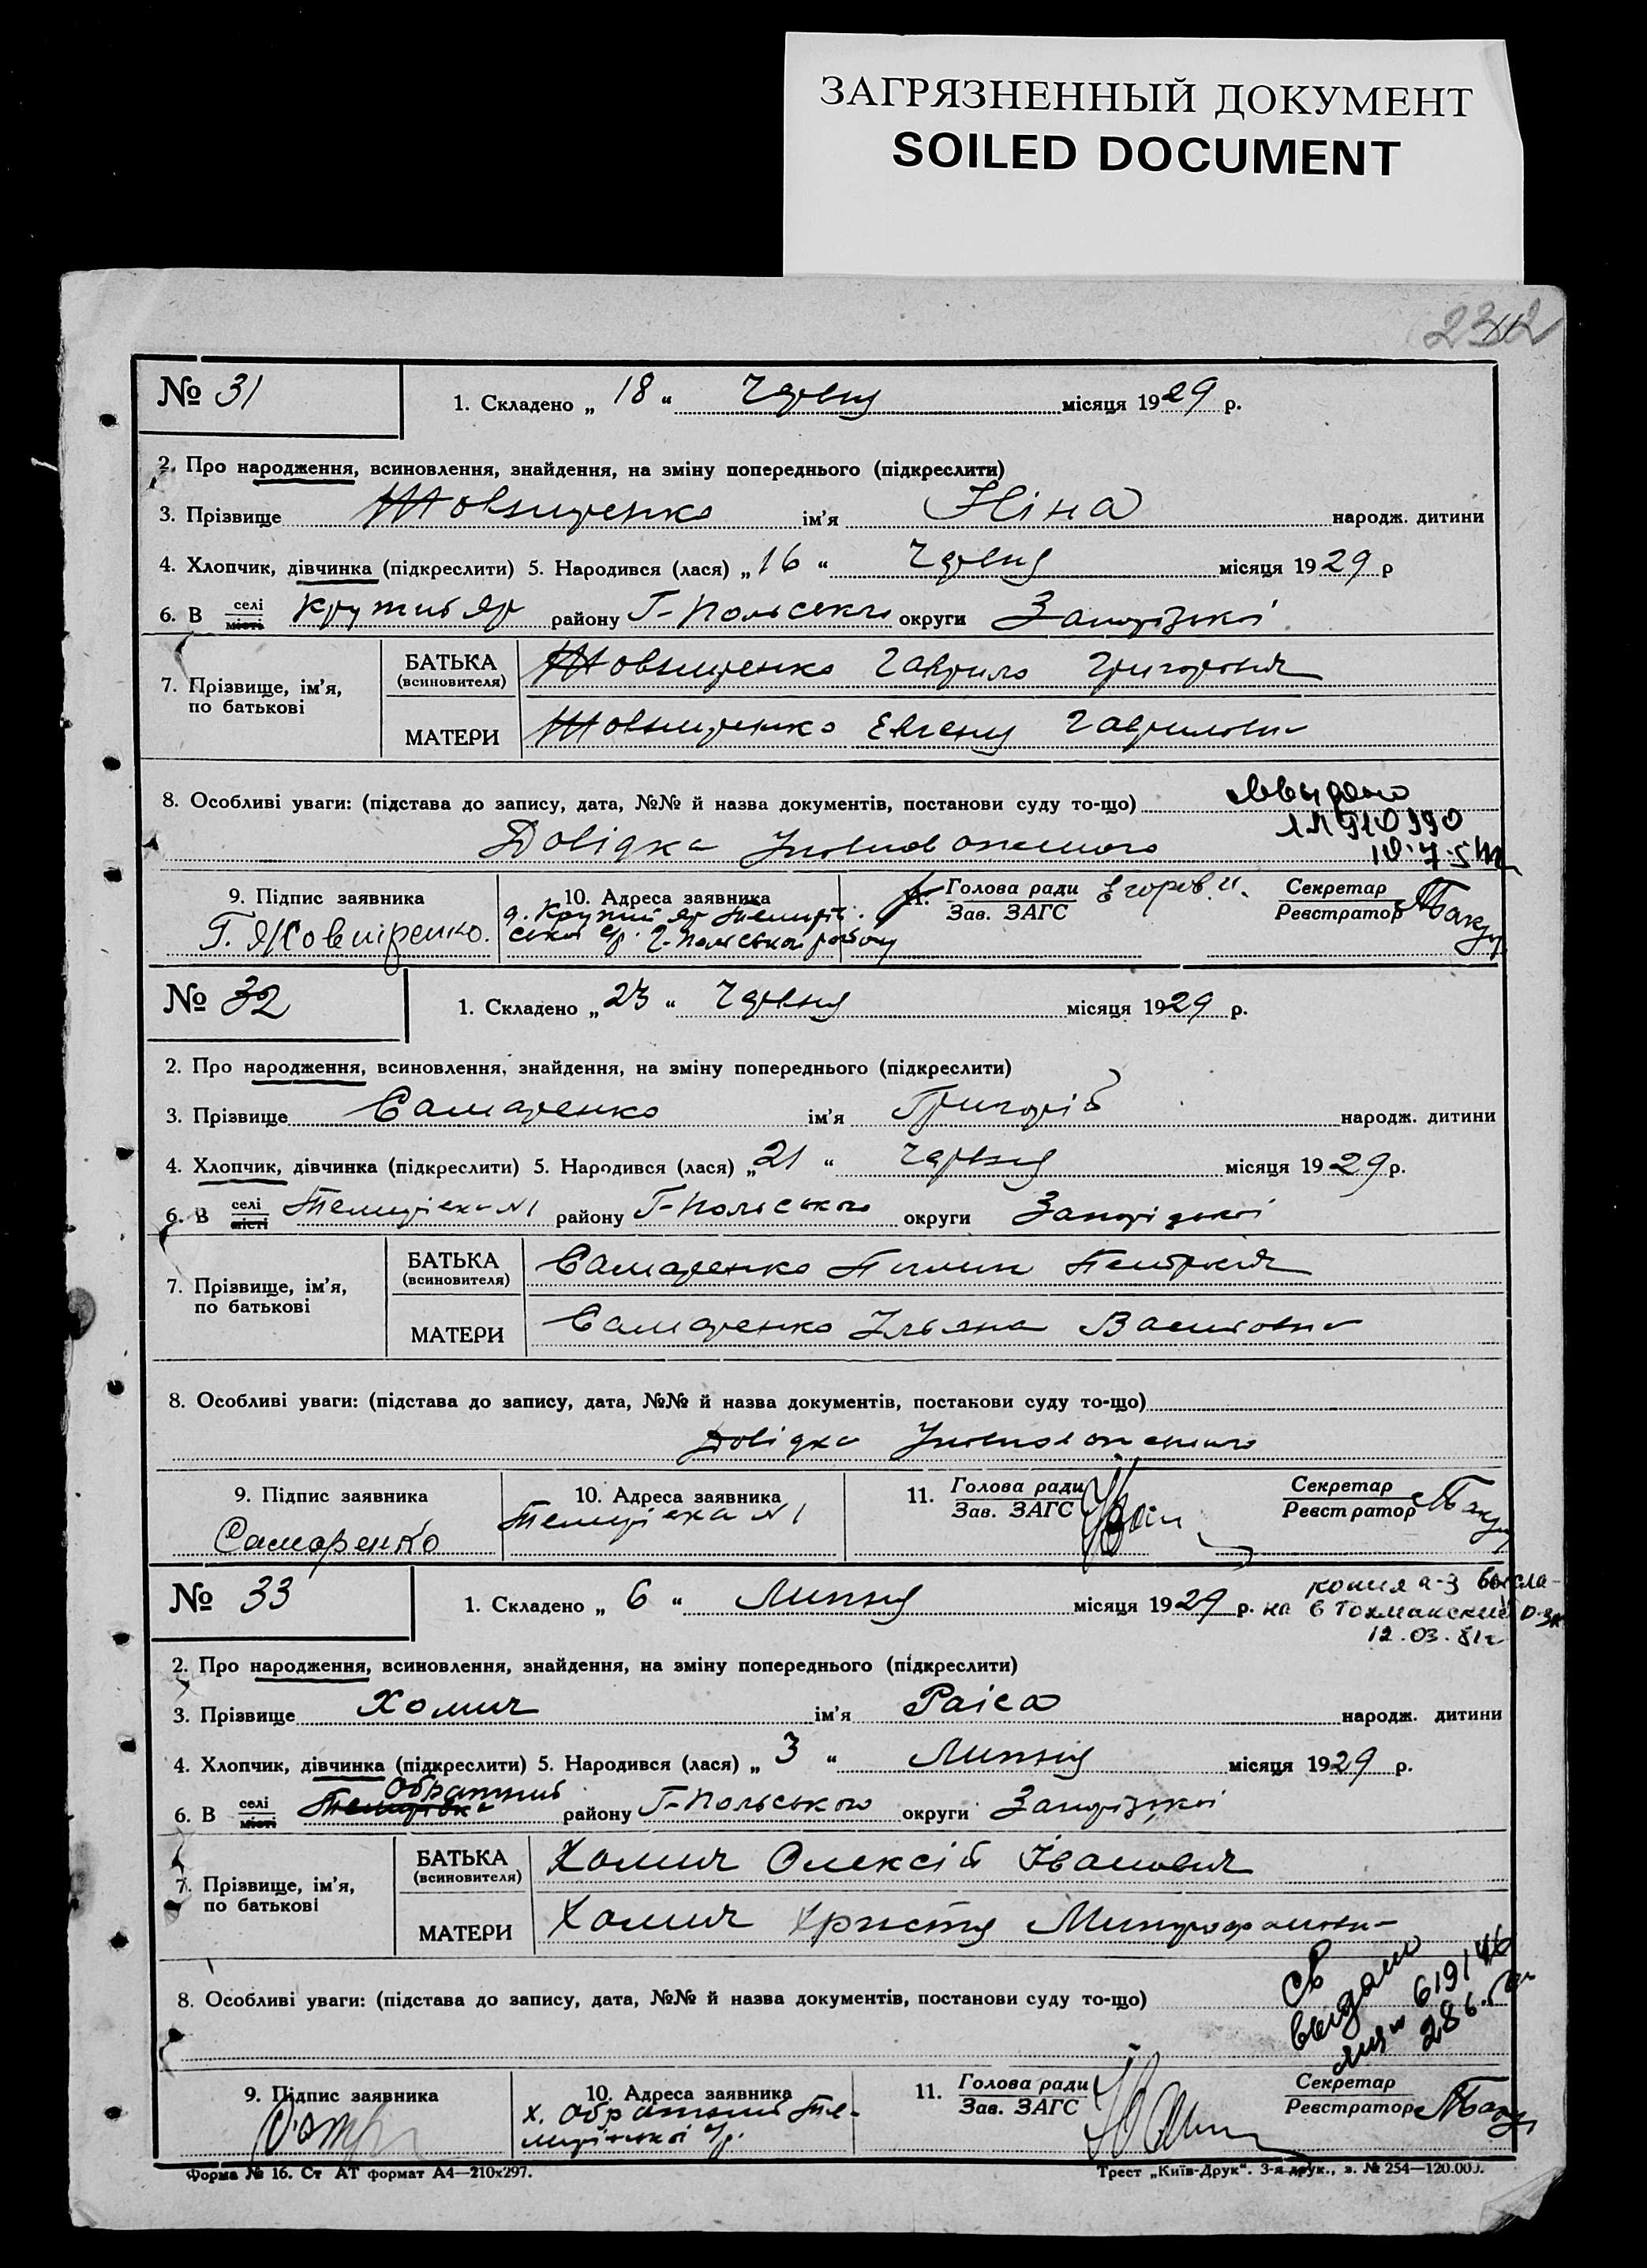 ЗАГРЯЗНЕННЫЙ ДОКУМЕНТ
SOILED DOCUMENT
№ 31
1. Складено „ 18 “ Червня місяця 1929 р.
2. Про народження, всиновлення, знайдення, на зміну попереднього (підкреслити)
3. Прізвище Жовтиренко ім’я Ніна народж. дитини
4. Хлопчик, дівчинка (підкреслити) 5. Народився (лася) „ 16 “ Червня місяця 1929 р
6. В селі місті Крутий Яр району Г-Польського округи Запорізької
7. Прізвище, ім’я, по батькові
БАТЬКА (всиновителя) Гаврило Григорович
МАТЕРИ Евгенія Гавриловна
8. Особливі уваги: (підстава до запису, дата, №№ й назва документів, постанови суду то-що)
Довідка
9. Підпис заявника
10. Адреса заявника
11. Голова ради Зав. ЗАГС Егоров
Секретар Реєстратор
№ 32
1. Складено „ 23 “ Червня місяця 1929 р.
2. Про народження, всиновлення, знайдення, на зміну попереднього (підкреслити)
3. Прізвище Самаренко ім’я Григорій народж. дитини
4. Хлопчик, дівчинка (підкреслити) 5. Народився (лася) „ 21 “ Червня місяця 1929 р.
6. В селі місті Темирівка №1 району Г-Польського округи Запорізької
7. Прізвище, ім’я, по батькові
БАТЬКА (всиновителя) Самаренко Пимин Петрович
МАТЕРИ Самаренко Ульяна Василовна
8. Особливі уваги: (підстава до запису, дата, №№ й назва документів, постанови суду то-що)
Довідка
9. Підпис заявника Самаренко
10. Адреса заявника Темирівка №1
11. Голова ради Зав. ЗАГС
Секретар Реєстратор
№ 33
1. Складено „ 6 “ Липня місяця 1929 р.
копия а-з высла-
на в Токмакский
12.03.81г
2. Про народження, всиновлення, знайдення, на зміну попереднього (підкреслити)
3. Прізвище Хомич ім’я Раіса народж. дитини
4. Хлопчик, дівчинка (підкреслити) 5. Народився (лася) „ 3 “ Липня місяця 1929 р.
Обратний
6. В селі місті Темирівка району Г-Польського округи Запорізької
7. Прізвище, ім’я, по батькові
БАТЬКА (всиновителя) Хомич Олексій Іванович
МАТЕРИ Хомич Христя Митрофановна
8. Особливі уваги: (підстава до запису, дата, №№ й назва документів, постанови суду то-що)
Св
выдано
619146
9. Підпис заявника
10. Адреса заявника
х. Обратний Те-
мирівської с/р.
11. Голова ради Зав. ЗАГС
Секретар Реєстратор
Форма № 16. Ст АТ формат А4—210х297.
Трест „Київ-Друк“. 3-я друк., з. № 254—120.000.